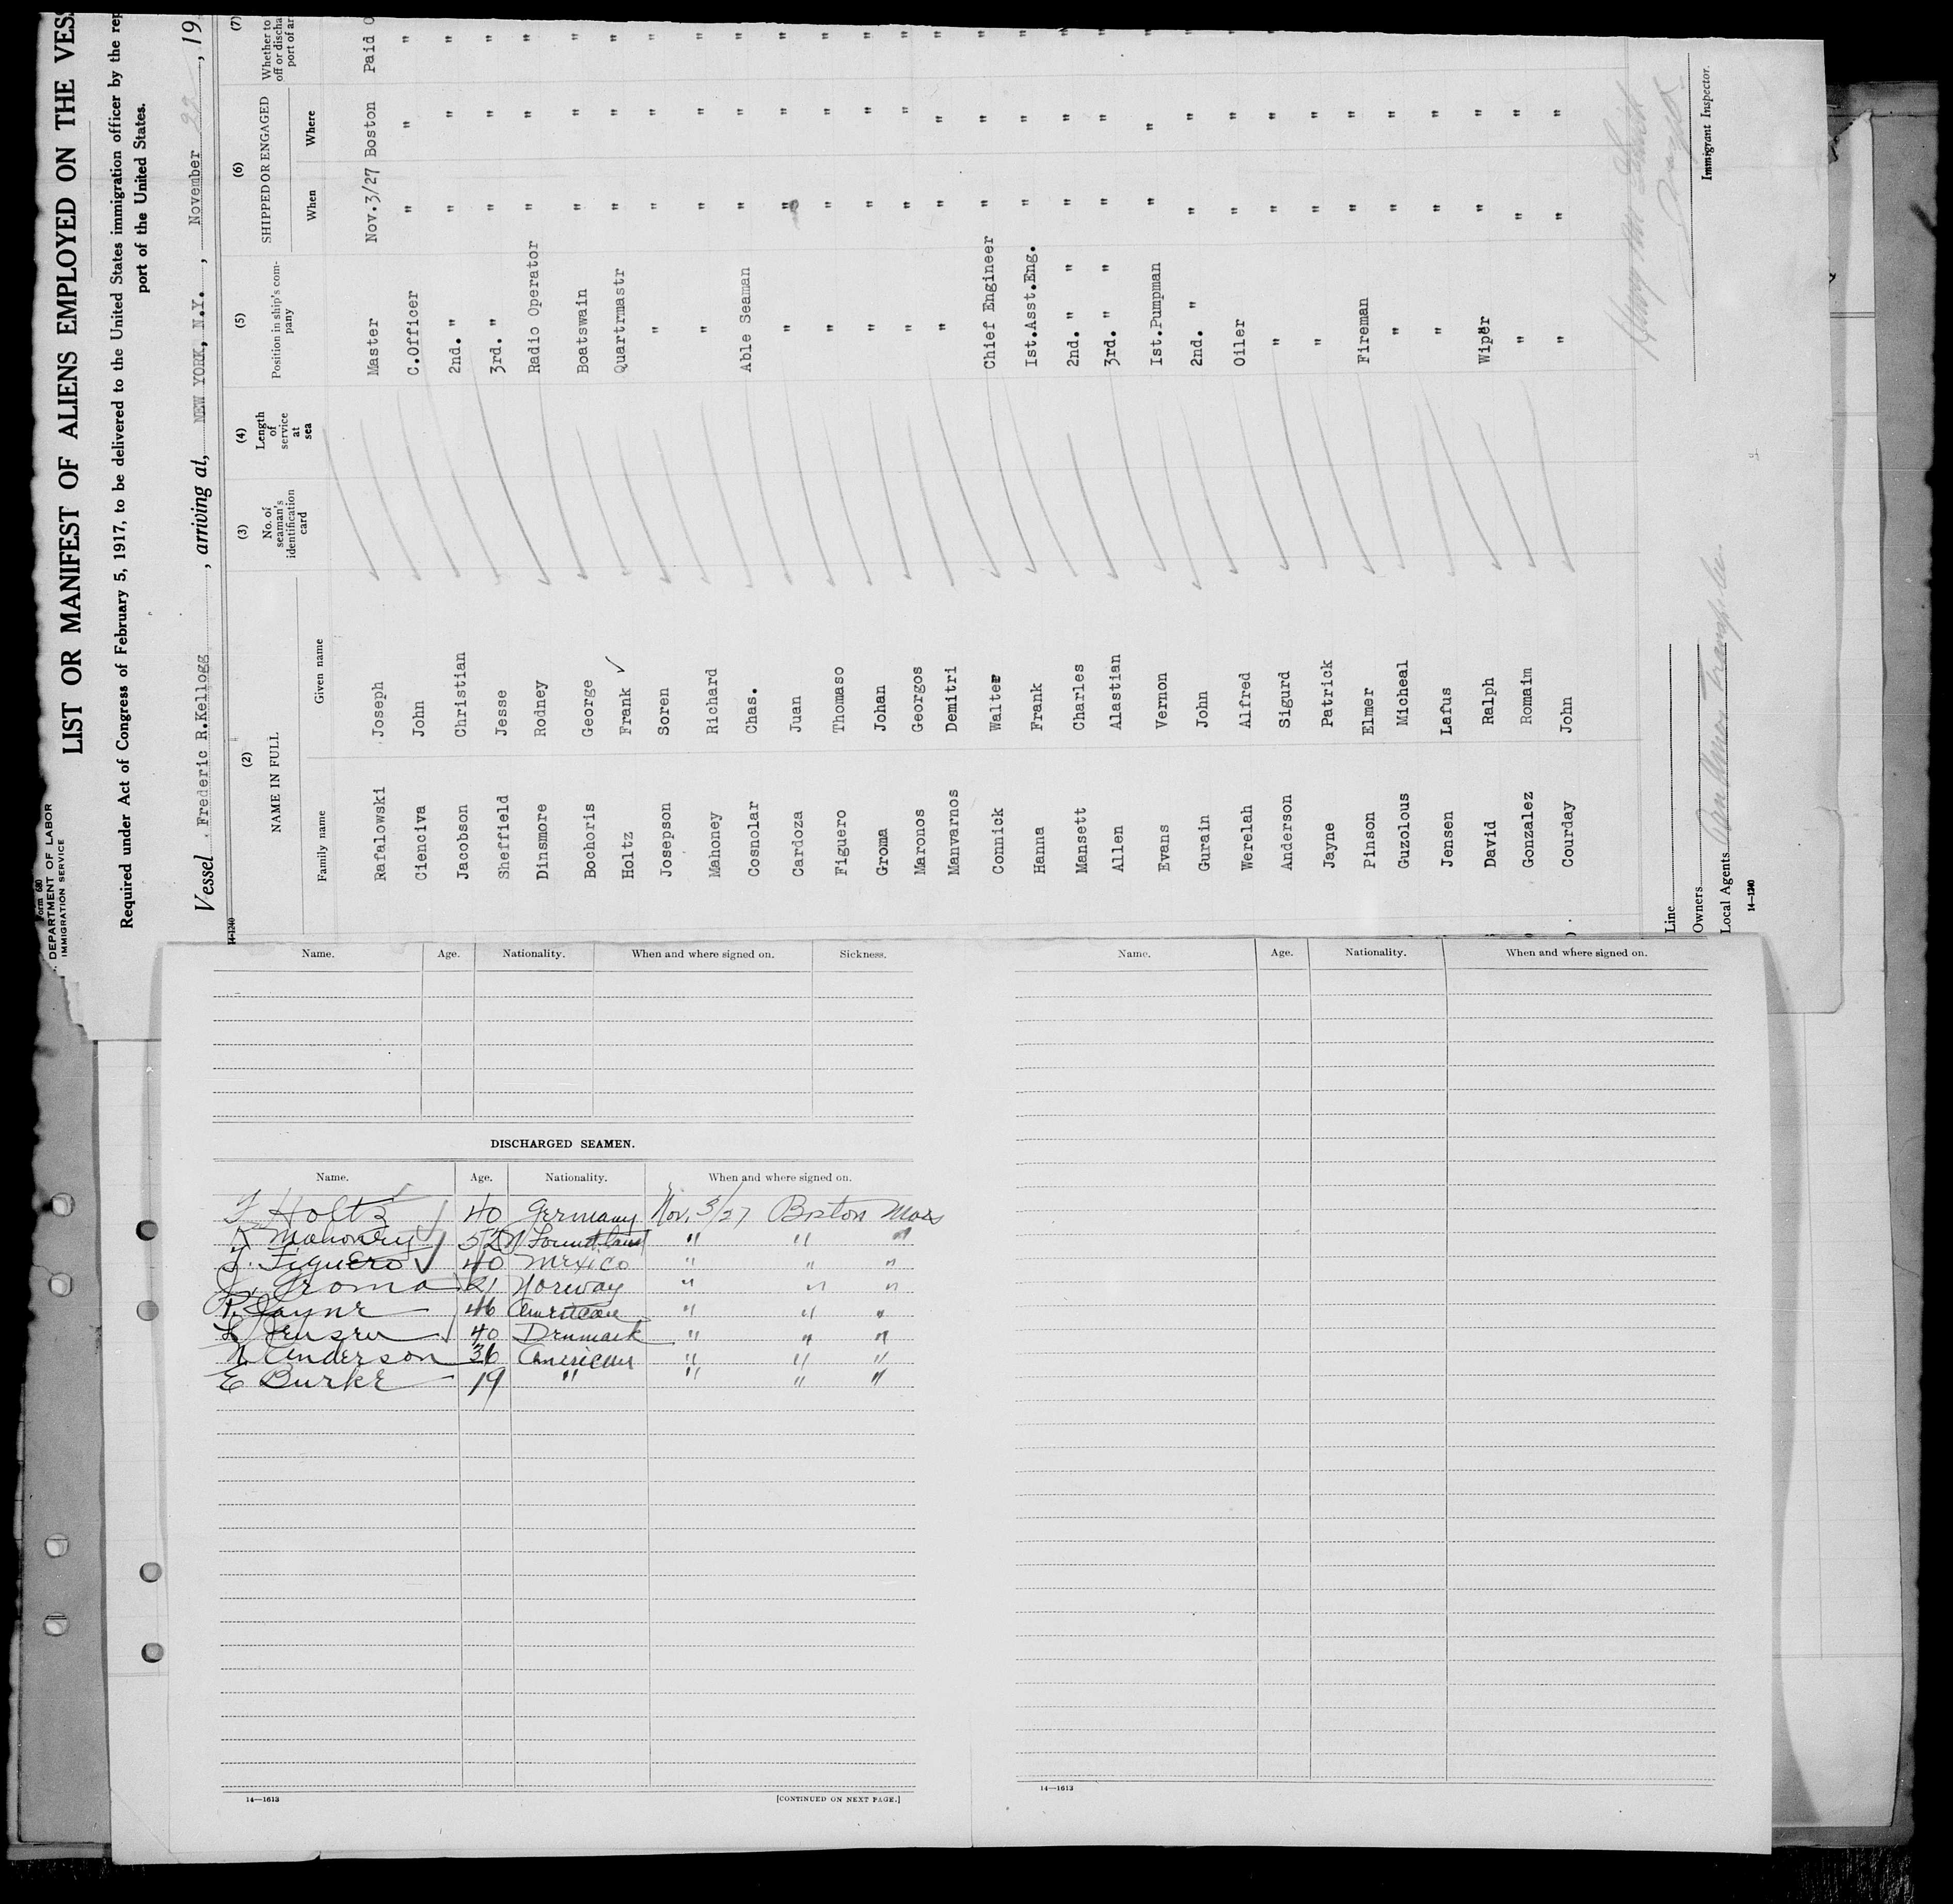 Form 680
DEPARTMENT OF LABOR
IMMIGRATION SERVICE
LIST OR MANIFEST OF ALIENS EMPLOYED ON THE VES
Required under Act of Congress of February 5, 1917, to be delivered to the United States immigration officer by the rep
port of the United States.
Vessel Frederic R.Kellogg , arriving at, NEW YORK, N.Y. , November 22 , 19
14-1240
(2) (3) (4) (5) (6) (7)
NAME IN FULL No. of seaman's identification card Length of service at sea Position in ship's company SHIPPED OR ENGAGED Whether to
off or discha
port of ar
Family name Given name When Where
Rafalowski Joseph Master Nov.3/27 Boston Paid O
Cienciva John C.Officer " " "
Jacobson Christian 2nd. " " " "
Sheffield Jesse 3rd. " " " "
Dinsmore Rodney Radio Operator " " "
Bochoris George Boatswain " " "
Holtz Frank ✓ Quartrmastr " " "
Josepson Soren " " " "
Mahoney Richard " " " "
Cosnolar Chas. Able Seaman " " "
Cardoza Juan " " " "
Figuero Thomaso " " " "
Groma Johan " " " "
Maronos Georgos " " " "
Manvarnos Demitri " " " "
Connick Walter Chief Engineer " " "
Hanna Frank Ist.Asst.Eng. " " "
Mansett Charles 2nd. " " " " "
Allen Alastian 3rd. " " " " "
Evans Vernon Ist.Pumpman " " "
Gurain John 2nd. " " " "
Werelah Alfred Oiler " " "
Anderson Sigurd " " " "
Jayne Patrick " " "
Pinson Elmer Fireman " "
Guzolous Micheal " " "
Jensen Lafus " " "
David Ralph Wiper " "
Gonzalez Romaim " " "
Courday John " " "
Immigrant Inspector.
Line
Owners
Local Agents
14-1240
Name. Age. Nationality. When and where signed on. Sickness.
DISCHARGED SEAMEN.
Name. Age. Nationality. When and where signed on.
F Holtz 40 Germany Nov. 3/27 Boston Mass
R Mahoney 52 N Foundland " " "
T. Figuero 40 Mexico " " "
J. Groma 21 Norway " " "
P. Jayne 46 American " " "
L Jensen 40 Denmark " " "
N Anderson 36 American " " "
E Burke 19 " " " "
14—1613 [CONTINUED ON NEXT PAGE.]
Name. Age. Nationality. When and where signed on.
14—1613